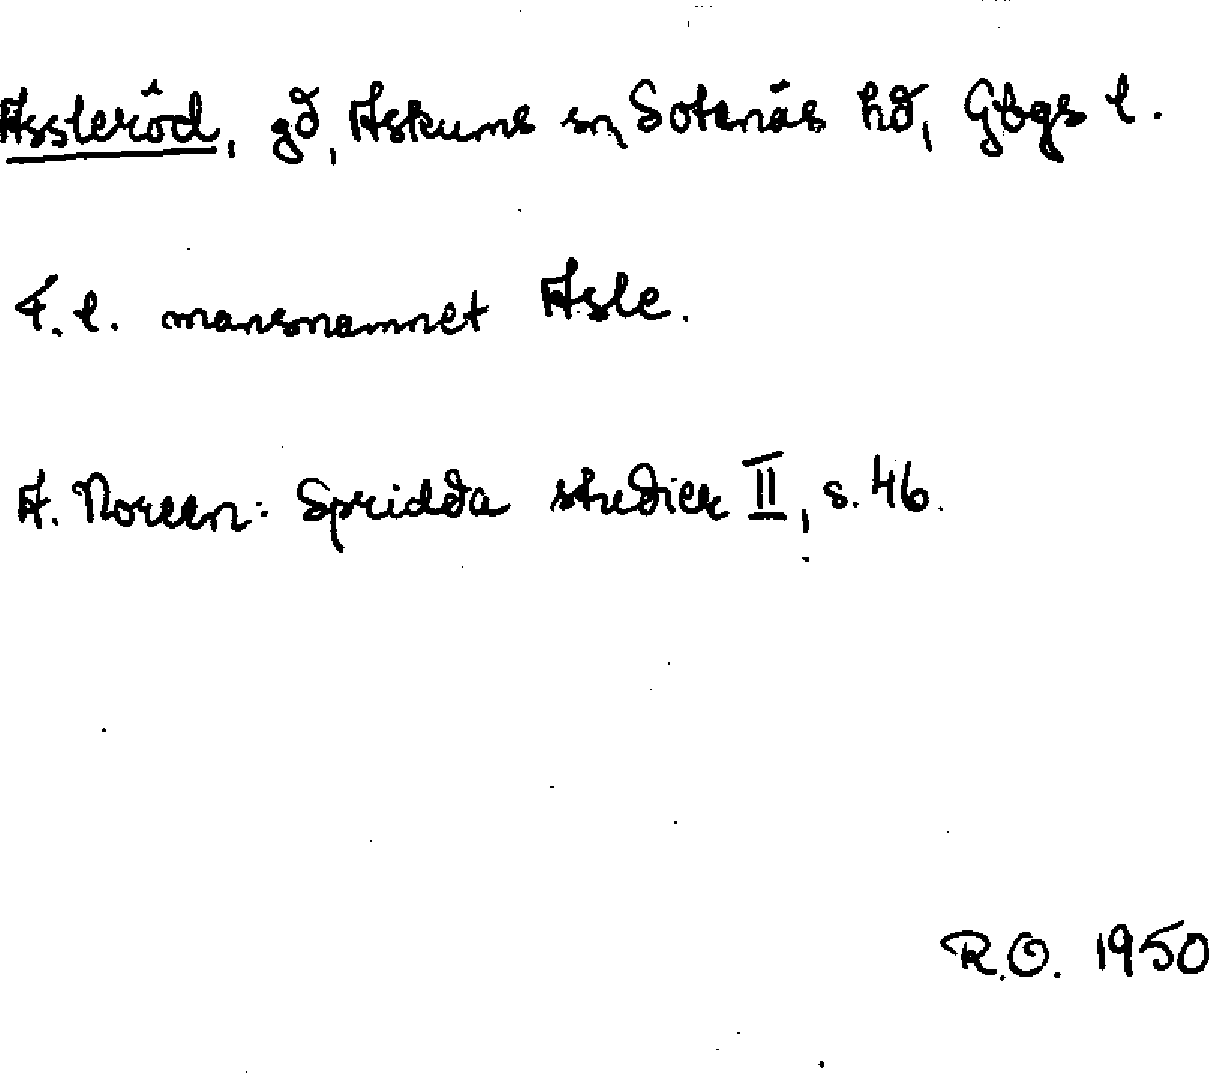 Assleröd, gd, Askums sn, Sotenäs hd, Gbgs l.
F.l. mansnamnet Asle.
A. Noreen: Spridda studier II, s. 46.
R.O. 1950